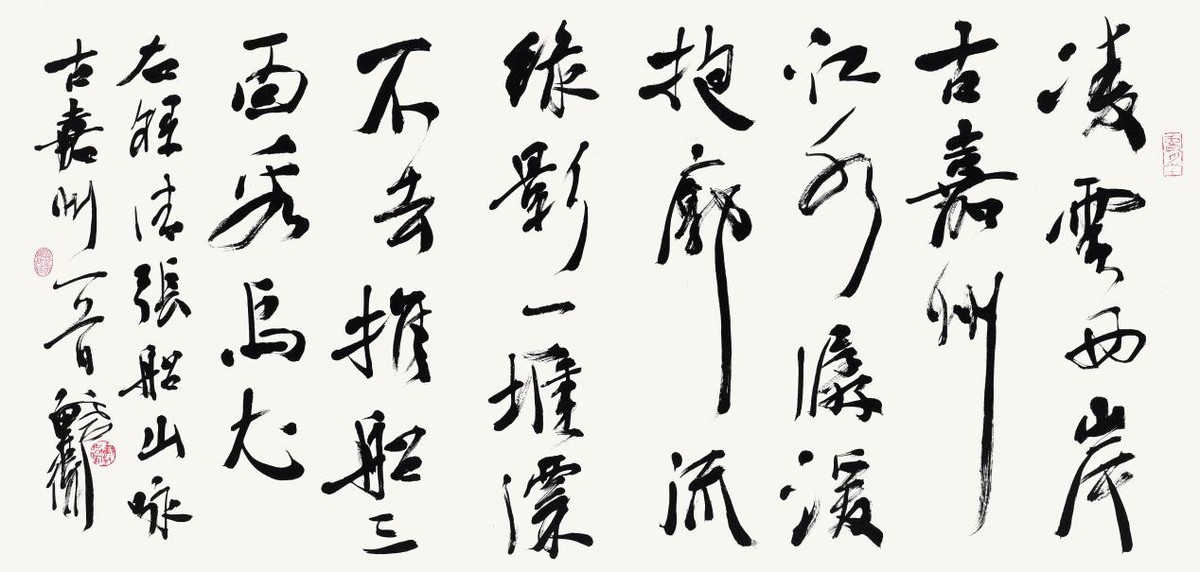 凌雲西岸
古嘉州
江水潺湲
抱廓流
綠影一堆漂
不去推船三
面看烏尤
右録清張船山咏
古嘉州一首